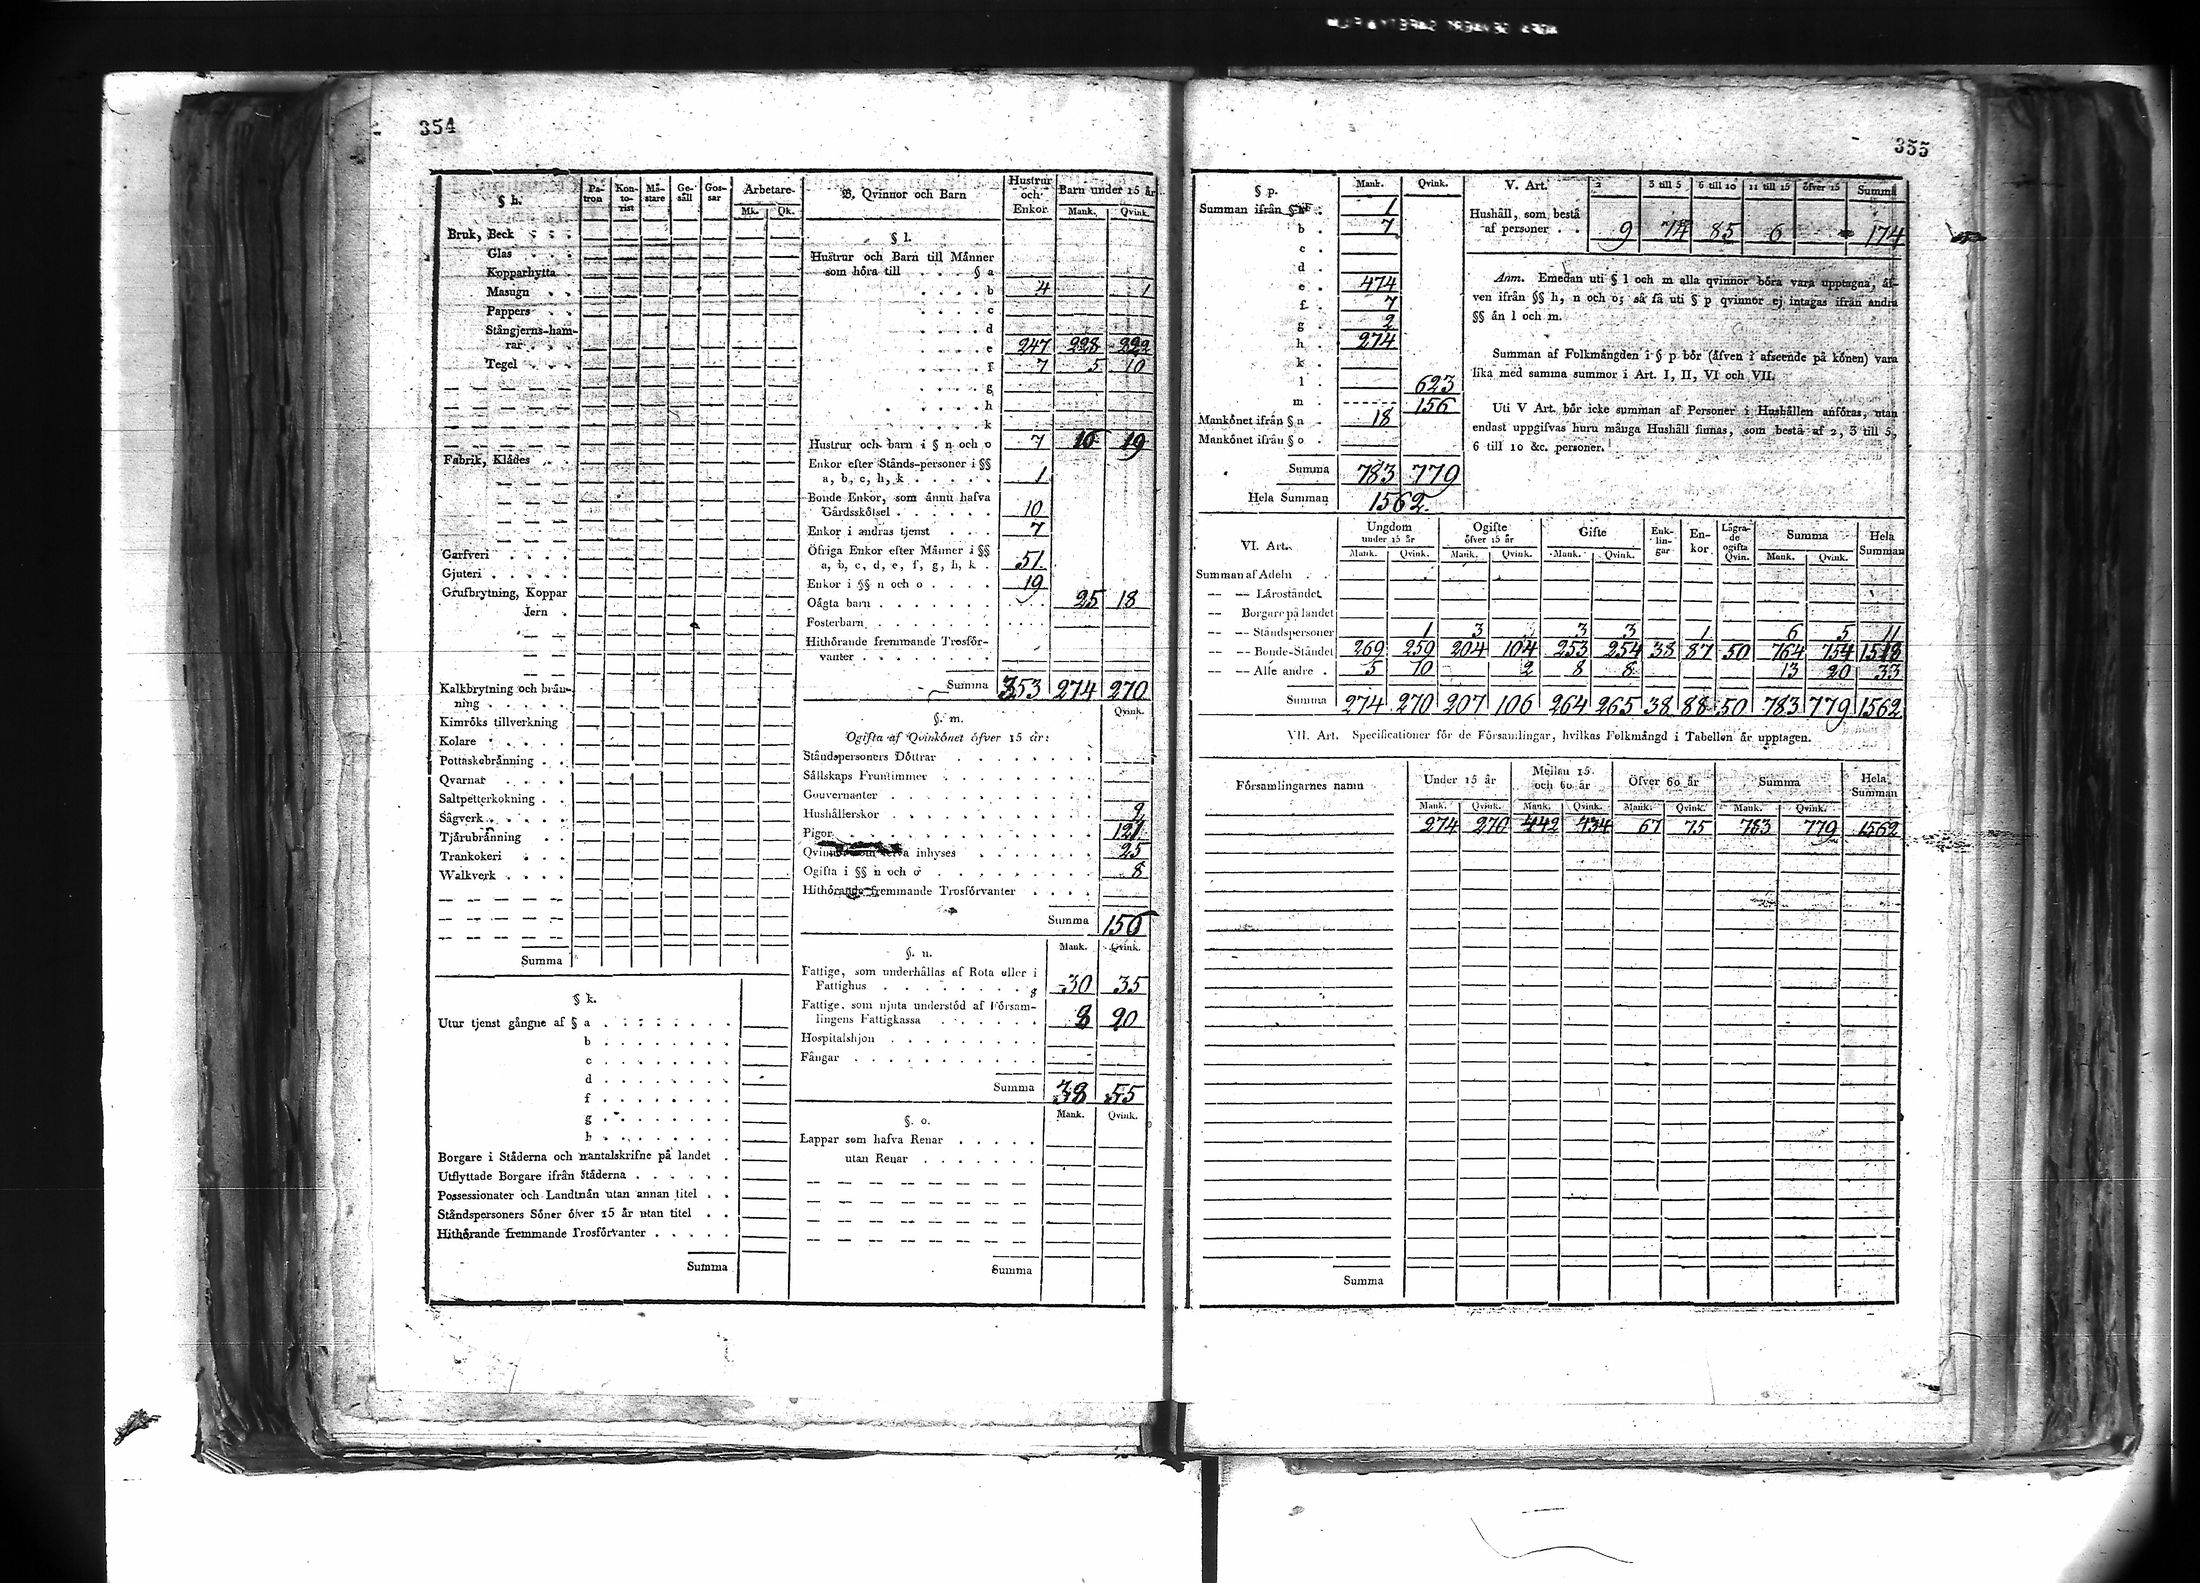 354
§ h.
Patron
Kontorist
Mästare
Gesäll
Gossar
Arbetare
Mk. Qk.
Bruk, Beck
Glas
Kopparhytta
Masugn
Pappers
Stångjerns-hamrar
Tegel
Fabrik, Klädes
Garfveri
Gjuteri
Grufbrytning, Koppar
Jern
Kalkbrytning och bränning
Kimröks tillverkning
Kolare
Pottaskebränning
Qvarnar
Saltpetterkokning
Sågverk
Tjärubränning
Trankokeri
Walkverk
Summa
§ k.
Utur tjenst gångne af § a
b
c
d
f
g
h
Borgare i Städerna och mantalskrifne på landet
Utflyttade Borgare ifrån Städerna
Possessionater och Landtmän utan annan titel
Ståndspersoners Söner öfver 15 år utan titel
Hithörande fremmande Trosförvanter
Summa
B, Qvinnor och Barn
Hustrur och Enkor
Barn under 15 år
Mank. Qvink.
§ l.
Hustrur och Barn till Männer
som höra till § a
b 4 1
c
d
e 247 228 222
f 7 5 10
g
h
k
Hustrur och barn i § n och o 7 16 19
Enkor efter Stånds-personer i §§
a, b, c, h, k 1
Bonde Enkor, som ännu hafva
Gårdsskötsel 10
Enkor i andras tjenst 7
Öfriga Enkor efter Männer i §§
a, b, c, d, e, f, g, h, k 51
Enkor i §§ n och o 19
Oägta barn 25 18
Fosterbarn
Hithörande fremmande Trosförvanter
Summa 353 274 270
§. m. Qvink.
Ogifta af Qvinkönet öfver 15 år:
Ståndspersoners Döttrar
Sällskaps Fruntimmer
Gouvernanter
Hushållerskor 2
Pigor 121
Qvinnor som lefva inhyses 25
Ogifta i §§ n och o 8
Hithörande fremmande Trosförvanter
Summa 156
§. n. Mank. Qvink.
Fattige, som underhållas af Rota eller i
Fattighus 30 35
Fattige, som njuta understöd af Församlingens
Fattigkassa 8 20
Hospitalshjon
Fångar
Summa 38 55
§. o. Mank. Qvink.
Lappar som hafva Renar
utan Renar
Summa
355
§ p. Mank. Qvink.
Summan ifrån § a 1
b 7
c
d
e 474
f 7
g 2
h 274
k
l 623
m 156
Mankönet ifrån § n 18
Mankönet ifrån § o
Summa 783 779
Hela Summan 1562
V. Art. 2 3 till 5 6 till 10 11 till 15 öfver 15 Summa
Hushåll, som bestå
af personer 9 74 85 6 174
Anm. Emedan uti § l och m alla qvinnor böra vara upptagna, äfven
ifrån §§ h, n och o; så få uti § p qvinnor ej intagas ifrån andra
§§ än l och m.
Summan af Folkmängden i § p bör (äfven i afseende på könen) vara
lika med samma summor i Art. I, II, VI och VII.
Uti V Art. bör icke summan af Personer i Hushållen anföras, utan
endast uppgifvas huru många Hushåll finnas, som bestå af 2, 3 till 5,
6 till 10 &c. personer.
VI. Art.
Ungdom under 15 år
Ogifte öfver 15 år
Gifte
Enklingar
Enkor
Lägrade ogifta Qvin.
Summa
Hela Summan
Mank. Qvink. Mank. Qvink. Mank. Qvink. Mank. Qvink.
Summan af Adeln
— — Läroståndet
— Borgare på landet
— — Ståndspersoner 1 3 3 3 1 6 5 11
— — Bonde-Ståndet 269 259 204 104 253 254 38 87 50 764 754 1518
— — Alle andre 5 10 2 8 8 13 20 33
Summa 274 270 207 106 264 265 38 88 50 783 779 1562
VII. Art. Specificationer för de Församlingar, hvilkas Folkmängd i Tabellen är upptagen.
Församlingarnes namn
Under 15 år
Mellan 15 och 60 år
Öfver 60 år
Summa
Hela Summan
Mank. Qvink. Mank. Qvink. Mank. Qvink. Mank. Qvink.
274 270 442 434 67 75 783 779 1562
Summa